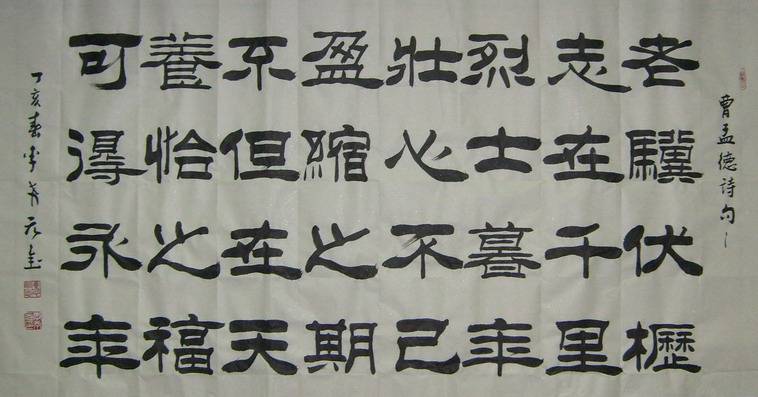 曹孟德詩句
老驥伏櫪
志在千里
烈士暮年
壯心不已
盈縮之期
不但在天
養恰之福
可得永年
丁亥春